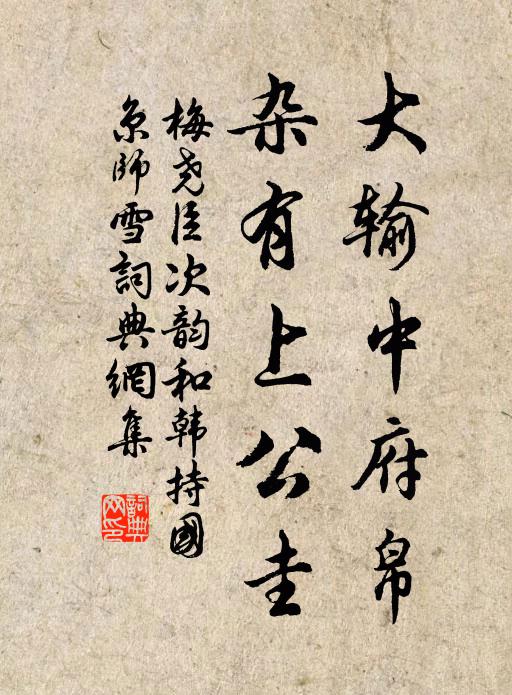 大输中府帛
杂有上公圭
梅尧臣次韵和韩持國
京师雪詞典網集
詞典
网印